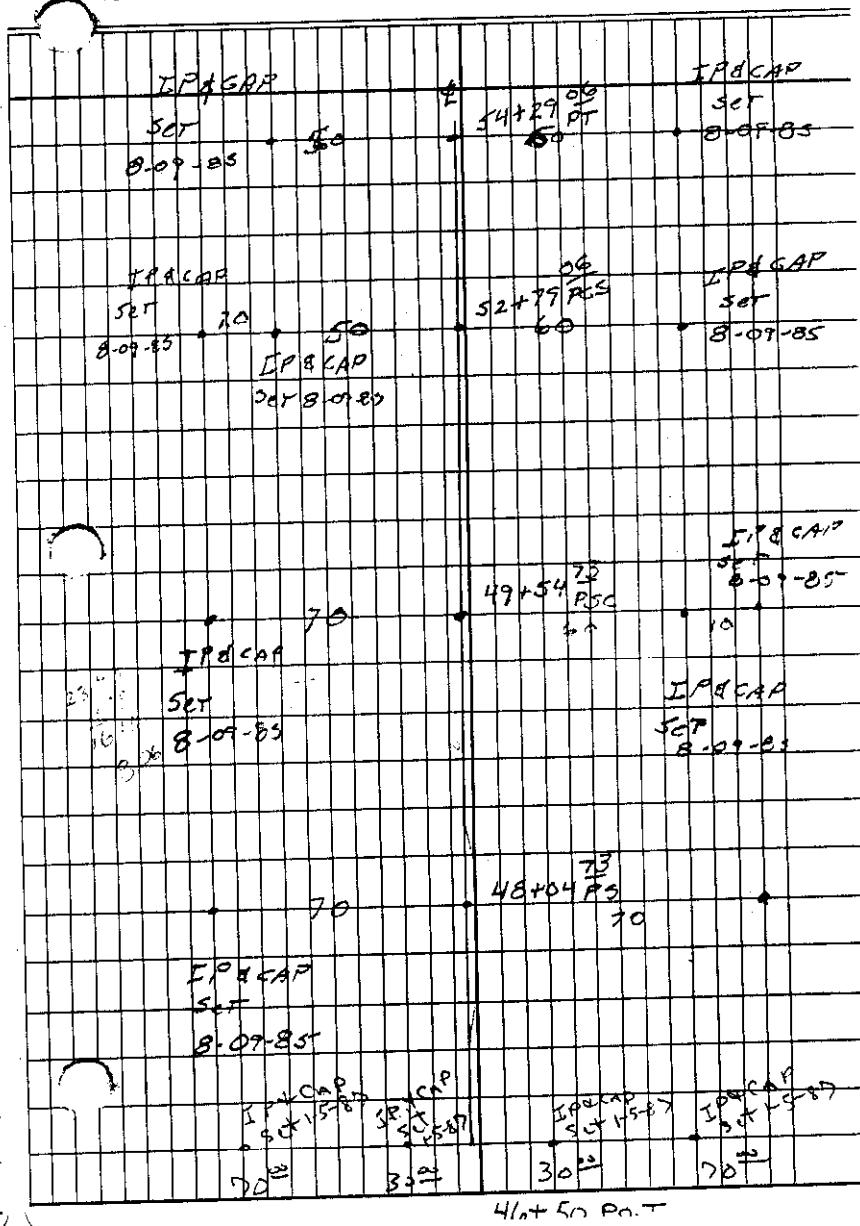 IP & CAP
Set
8-09-85
50
℄
54+29 06
PT
60
IP & CAP
Set
8-09-85
IP & CAP
Set
8-09-85
20
50
IP & CAP
Set 8-09-85
52+79 06
PCS
60
IP & CAP
Set
8-09-85
70
IP & CAP
Set
8-09-85
49+54 72
PSC
10
IP & CAP
Set
8-09-85
IP & CAP
Set
8-09-85
70
IP & CAP
Set
8-09-85
48+04 73
PS
70
IP & CAP
Set 1-5-87
70
IP & CAP
Set
1-5-87
30
IP & CAP
Set 1-5-87
30
IP & CAP
Set 1-5-87
70
46+50 PO.T